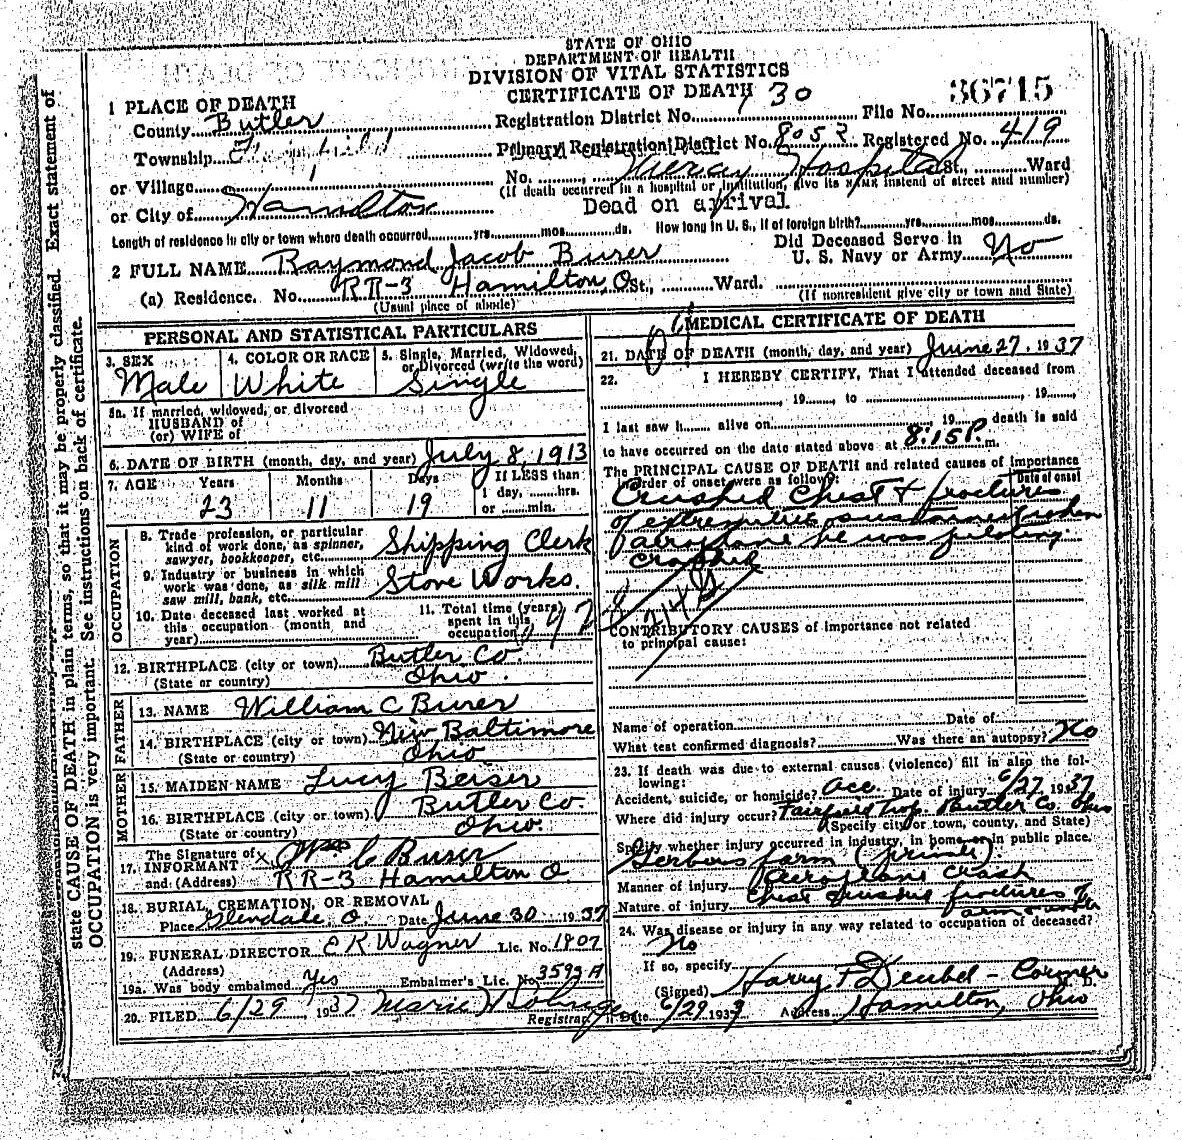 STATE OF OHIO
DEPARTMENT OF HEALTH
DIVISION OF VITAL STATISTICS
CERTIFICATE OF DEATH
36715
1 PLACE OF DEATH
County Butler Registration District No. 130 File No.
Township Primary Registration District No. 8052 Registered No. 419
or Village No. Mercy Hospital St., Ward
(If death occurred in a hospital or institution, give its NAME instead of street and number)
or City of Hamilton Dead on arrival
Length of residence in city or town where death occurred yrs. mos. ds. How long in U. S., if of foreign birth? yrs. mos. ds.
2 FULL NAME Raymond Jacob Burer Did Deceased Serve in U. S. Navy or Army No
(a) Residence. No. RR-3 Hamilton, O St., Ward.
(Usual place of abode) (If nonresident give city or town and State)
PERSONAL AND STATISTICAL PARTICULARS
3. SEX Male
4. COLOR OR RACE White
5. Single, Married, Widowed, or Divorced (write the word) Single
5a. If married, widowed, or divorced
HUSBAND of
(or) WIFE of
6. DATE OF BIRTH (month, day, and year) July 8, 1913
7. AGE Years 23 Months 11 Days 19 If LESS than 1 day, hrs. or min.
OCCUPATION
8. Trade profession, or particular kind of work done, as spinner, sawyer, bookkeeper, etc. Shipping Clerk
9. Industry or business in which work was done, as silk mill saw mill, bank, etc. Stove Works.
10. Date deceased last worked at this occupation (month and year)
11. Total time (years) spent in this occupation
12. BIRTHPLACE (city or town) Butler Co.
(State or country) Ohio.
FATHER
13. NAME William C Burer
14. BIRTHPLACE (city or town) New Baltimore
(State or country) Ohio
MOTHER
15. MAIDEN NAME Lucy Beiser
16. BIRTHPLACE (city or town) Butler Co.
(State or country) Ohio.
17. The Signature of INFORMANT x Wm C Burer
and (Address) RR-3 Hamilton O.
18. BURIAL, CREMATION, OR REMOVAL
Place Glendale, O. Date June 30 1937
19. FUNERAL DIRECTOR E R Wagner Lic. No. 1807
(Address)
19a. Was body embalmed Yes Embalmer's Lic. No. 3593A
20. FILED 6/29, 1937 Marie
Registrar
MEDICAL CERTIFICATE OF DEATH
21. DATE OF DEATH (month, day, and year) June 27, 1937
22. I HEREBY CERTIFY, That I attended deceased from
, 19 , to , 19 ,
I last saw h alive on 19 death is said
to have occurred on the date stated above at 8:15 P. m.
The PRINCIPAL CAUSE OF DEATH and related causes of importance
order of onset were as follows: Date of onset
Crushed Chest & fractures
of extremities sustained when
aeroplane he was piloting
crashed
CONTRIBUTORY CAUSES of importance not related
to principal cause:
Name of operation Date of
What test confirmed diagnosis? Was there an autopsy? No
23. If death was due to external causes (violence) fill in also the following:
Accident, suicide, or homicide? acc. Date of injury 6/27 1937
Where did injury occur? Fairfield Twp. Butler Co. Ohio
(Specify city or town, county, and State)
Specify whether injury occurred in industry, in home, or in public place.
Gerbers farm (private).
Manner of injury aeroplane crash
Nature of injury Chest fractures
24. Was disease or injury in any way related to occupation of deceased?
No
If so, specify
(Signed) Harry F. Deubel - Coroner
Date 6/29 1937 Address Hamilton, Ohio
state CAUSE OF DEATH in plain terms, so that it may be properly classified. Exact statement of
OCCUPATION is very important. See instructions on back of certificate.